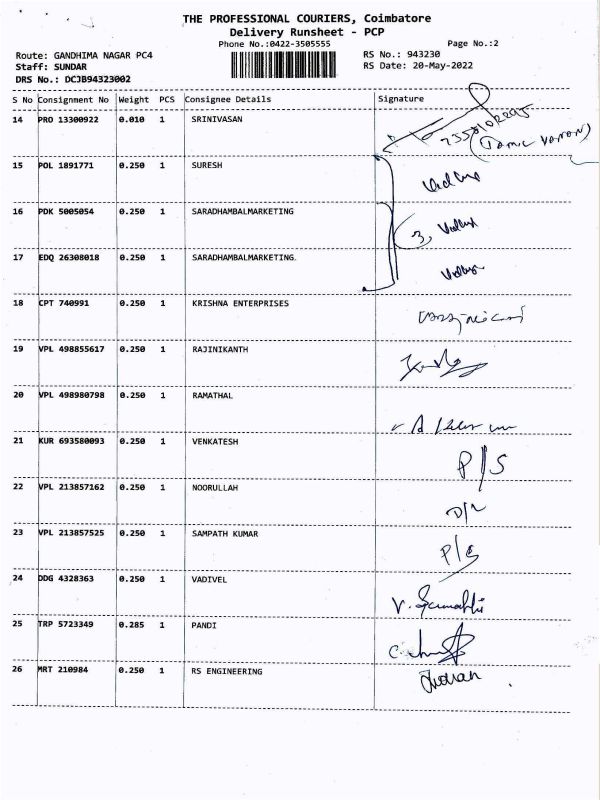 THE PROFESSIONAL COURIERS, Coimbatore
Delivery Runsheet - PCP
Phone No.:0422-3505555
Page No.:2
Route: GANDHIMA NAGAR PC4
RS No.: 943230
Staff: SUNDAR
RS Date: 20-May-2022
DRS No.: DCJB94323002
S No Consignment No Weight PCS Consignee Details Signature
14 PRO 13300922 0.010 1 SRINIVASAN
15 POL 1891771 0.250 1 SURESH
16 PDK 5005054 0.250 1 SARADHAMBALMARKETING
17 EDQ 26308018 0.250 1 SARADHAMBALMARKETING.
18 CPT 740991 0.250 1 KRISHNA ENTERPRISES
19 VPL 498855617 0.250 1 RAJINIKANTH
20 VPL 498980798 0.250 1 RAMATHAL
21 KUR 693580093 0.250 1 VENKATESH P/S
22 VPL 213857162 0.250 1 NOORULLAH D/L
23 VPL 213857525 0.250 1 SAMPATH KUMAR P/S
24 DDG 4328363 0.250 1 VADIVEL
25 TRP 5723349 0.285 1 PANDI
26 MRT 210984 0.250 1 RS ENGINEERING